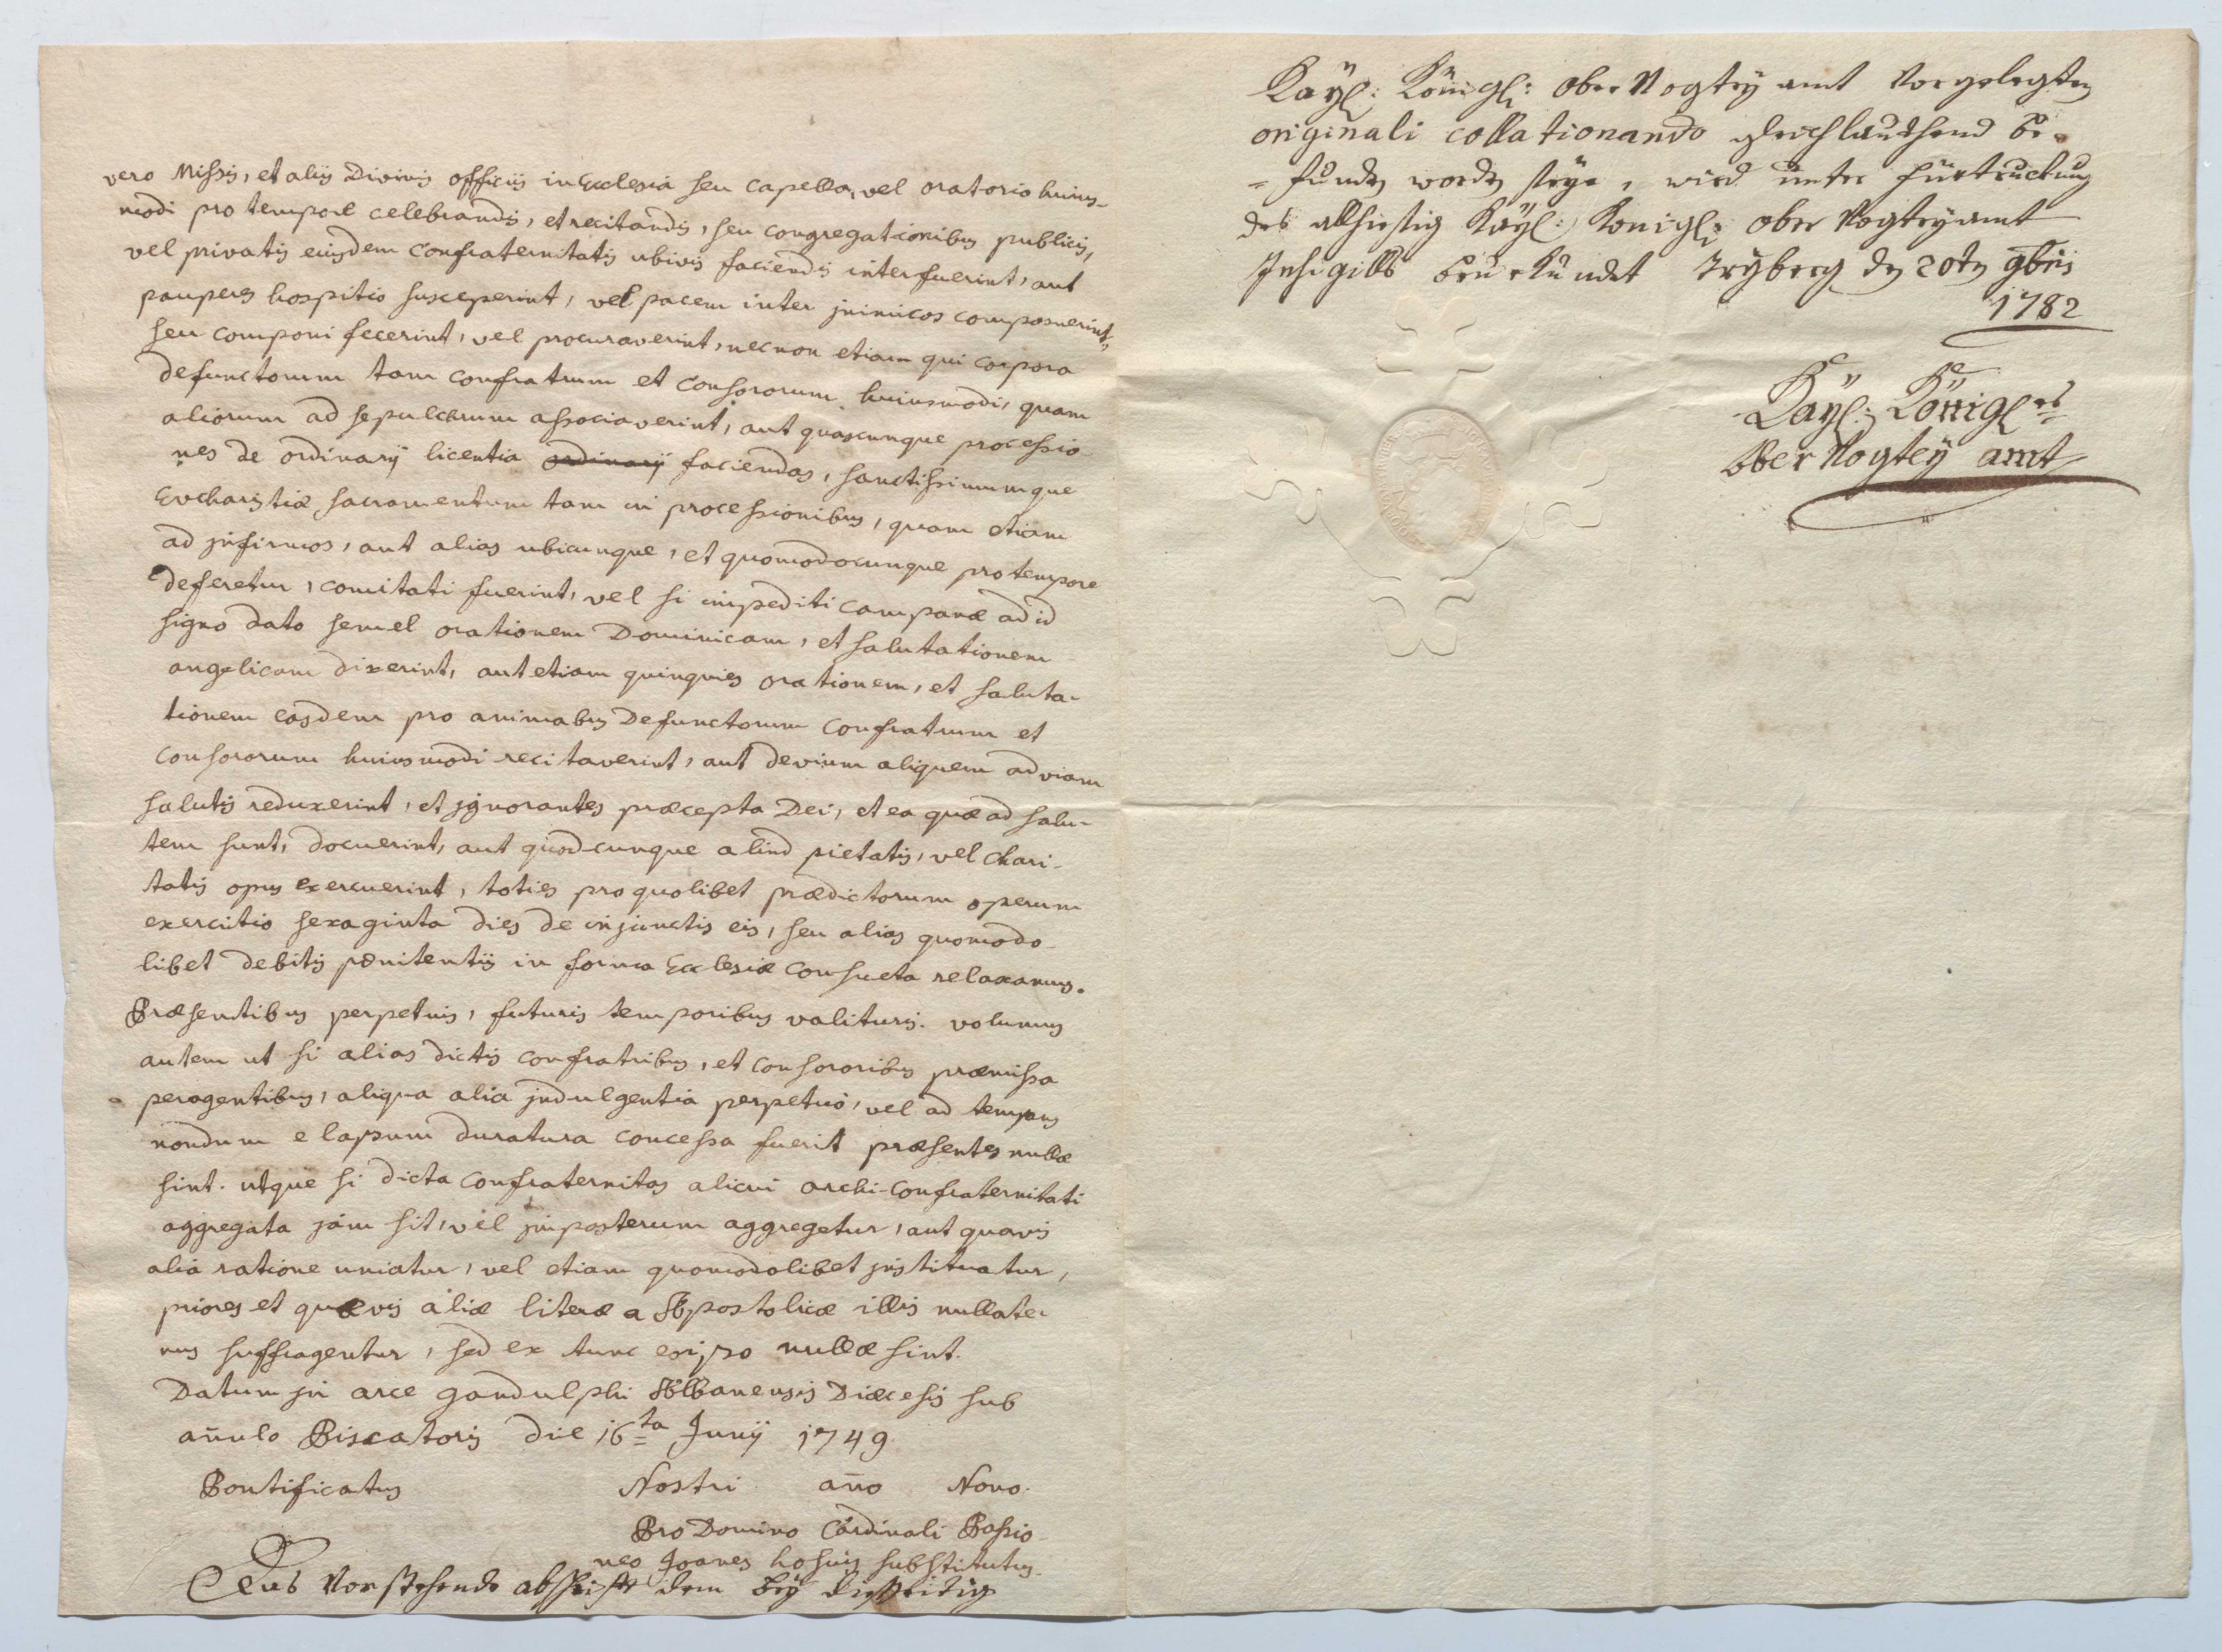 vero Missis, et aliis Divinis officiis in Ecclesia seu Capella, vel oratorio huius-
modi pro tempore celebrandis, et recitandis, seu congregationibus publicis,
vel privatis eiusdem Confraternitatis ubivis faciendis interfuerint, aut
pauperes hospitio susceperint, vel pacem inter jnimicos composuerint,
seu componi fecerint, vel procuraverint, necnon etiam qui corpora
defunctorum tam confratrum et Consororum huiusmodi, quam
aliorum ad sepulchrum associaverint, aut quascunque processio-
nes de ordinarij licentia ordinarij faciendas, sanctissimumque
Evcharistiæ sacramentum tam in processionibus, quam etiam
ad jnfirmos, aut alias ubicunque, et quomodocunque pro tempore
deferetur, comitati fuerint, vel si impediti campanæ ad id
signo dato semel orationem Dominicam, et salutationem
angelicam dixerint, aut etiam quinquies orationem, et saluta-
tionem easdem pro animabus Defunctorum confratrum et
consororum huiusmodi recitaverint, aut devium aliquem ad viam
salutis reduxerint, et jgnorantes præcepta Dei, et ea quæ ad salu-
tem sunt, docuerint, aut quodcunque aliud pietatis, vel chari-
tatis opus exercuerint, toties pro quolibet prædictorum operum
exercitio sexaginta dies de injunctis eis, seu alias quomodo-
libet debitis pænitentiis in forma Ecclesiæ consueta relaxamus.
Præsentibus perpetuis, futuris temporibus valituris. volumus
autem ut si alias dictis confratribus, et consororibus præmissa
peragentibus, aliqua alia jndulgentia perpetuò, vel ad tempus
nondum elapsum duratura concessa fuerit præsentes nullæ
sint. utque si dicta confraternitas alicui archi-confraternitati
aggregata jam sit, vel jnposterum aggregetur, aut quavis
alia ratione uniatur, vel etiam quomodolibet jnstituatur,
priores et quævis aliæ literæ a Apostolicæ illis nullate-
nus suffragentur, sed ex tunc eo ipso nullæ sint.
Datum jn arce gandulphi Albanensis Diæcesis sub
añulo Piscatoris die 16ta Junij 1749
Pontificatus Nostri año Nono.
Pro Domino Cardinali Passio-
neo Joanes substitutus.
Das Vorstehende abschrift dem bey diesseitig
Kayl: Königl: Ober Vogtey amt Vorgelegten
originali collationando gleichlauthend be-
-funden worden seye, wird unter fürtruckung
des allhiesig Kayl: Königl: Ober Vogteyamt
Jnsigills beurkundet Tryberg den 20ten 9bris
1782
Kayl: Königles
Ober Vogtey amt